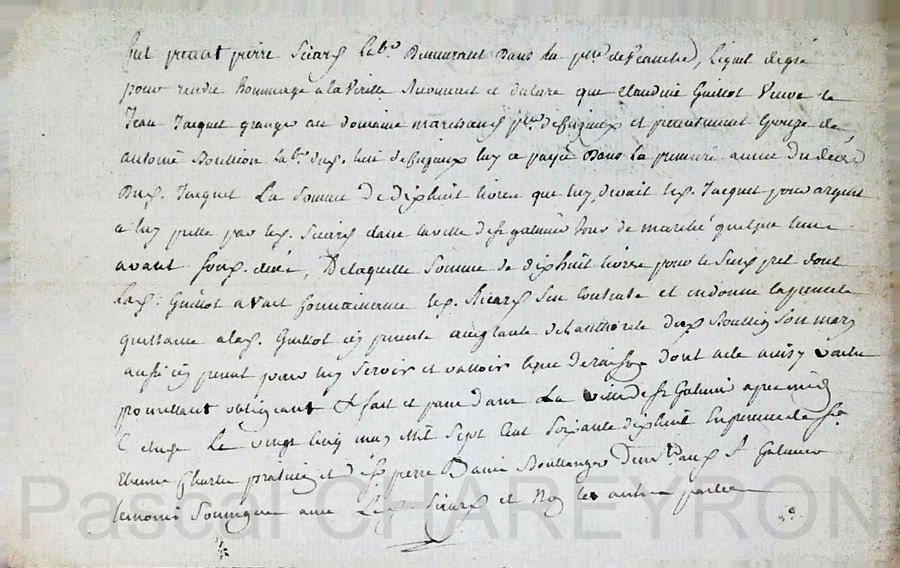 fut présent pierre Sicard lab.r Demeurant Dans la p.sse de Veauche, Lequel de gré
pour rendre hommage a la Vérité Reconnait et declare que claudine Guillot Veuve de
Jean Jacquet granger au domaine marchand p.sse de Cuzieux et présentement Epouze de
antoine Boullion lab.r dud. lieu de Cuzieux luy a payée Dans la premiere année du decés
Dud. Jacquet La Somme de dixhuit livres que luy devait led. Jacquet pour argent
a luy pretté par led. Sicard dans la ville de st galmier jour de marché quelque tems
avant son d. decés, De laquelle Somme de dixhuit livres pour le Susd. pret dont
lad. Guillot avait connaissance led. Sicard Sen Contente et en donne la presente
quittance a lad. Guillot icy presente acceptante de l'authorité dud. Boullion Son mary
aussi icy present pour luy Servir et valloir ce que de raison dont acte ainsy voulu
promettant obligeant &. fait et passé dans La Ville de st Galmier apres midy
Le vingt cinq may Mil Sept Cent Soixante dixhuit En presence de Sr
Etienne praticien et de Sr pierre Boullanger demt. aud. St Galmier
temoins Soussignés avec Led. Sicard et Non les autres parties
Pascal CHAREYRON